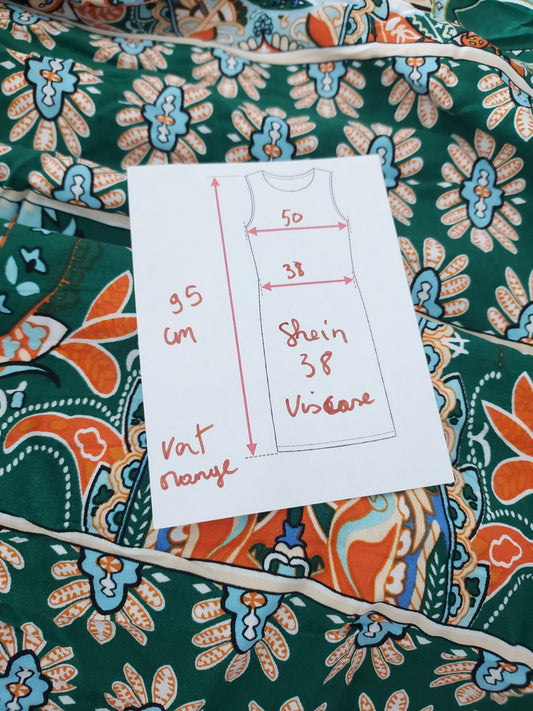 50
38
95
cm
Shein
38
Viscose
Vert
orange